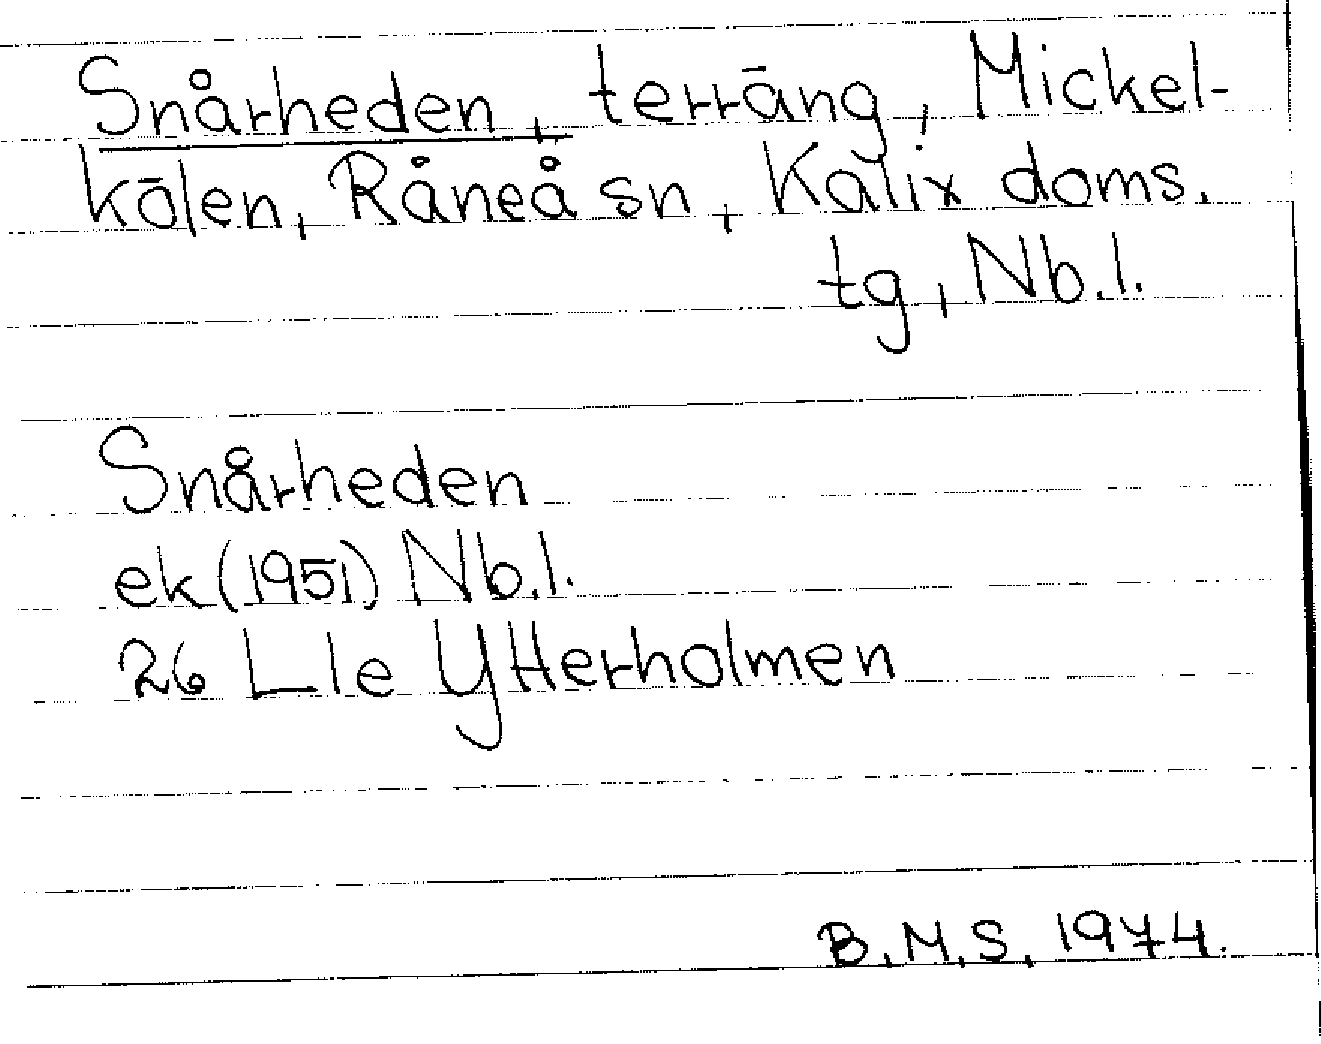 Snårheden, terräng, Mickel-
kölen, Råneå sn, Kalix doms.
tg, Nb.l.
Snårheden
ek (1951) Nb.l.
26 Lle Ytterholmen
B.M.S. 1974.